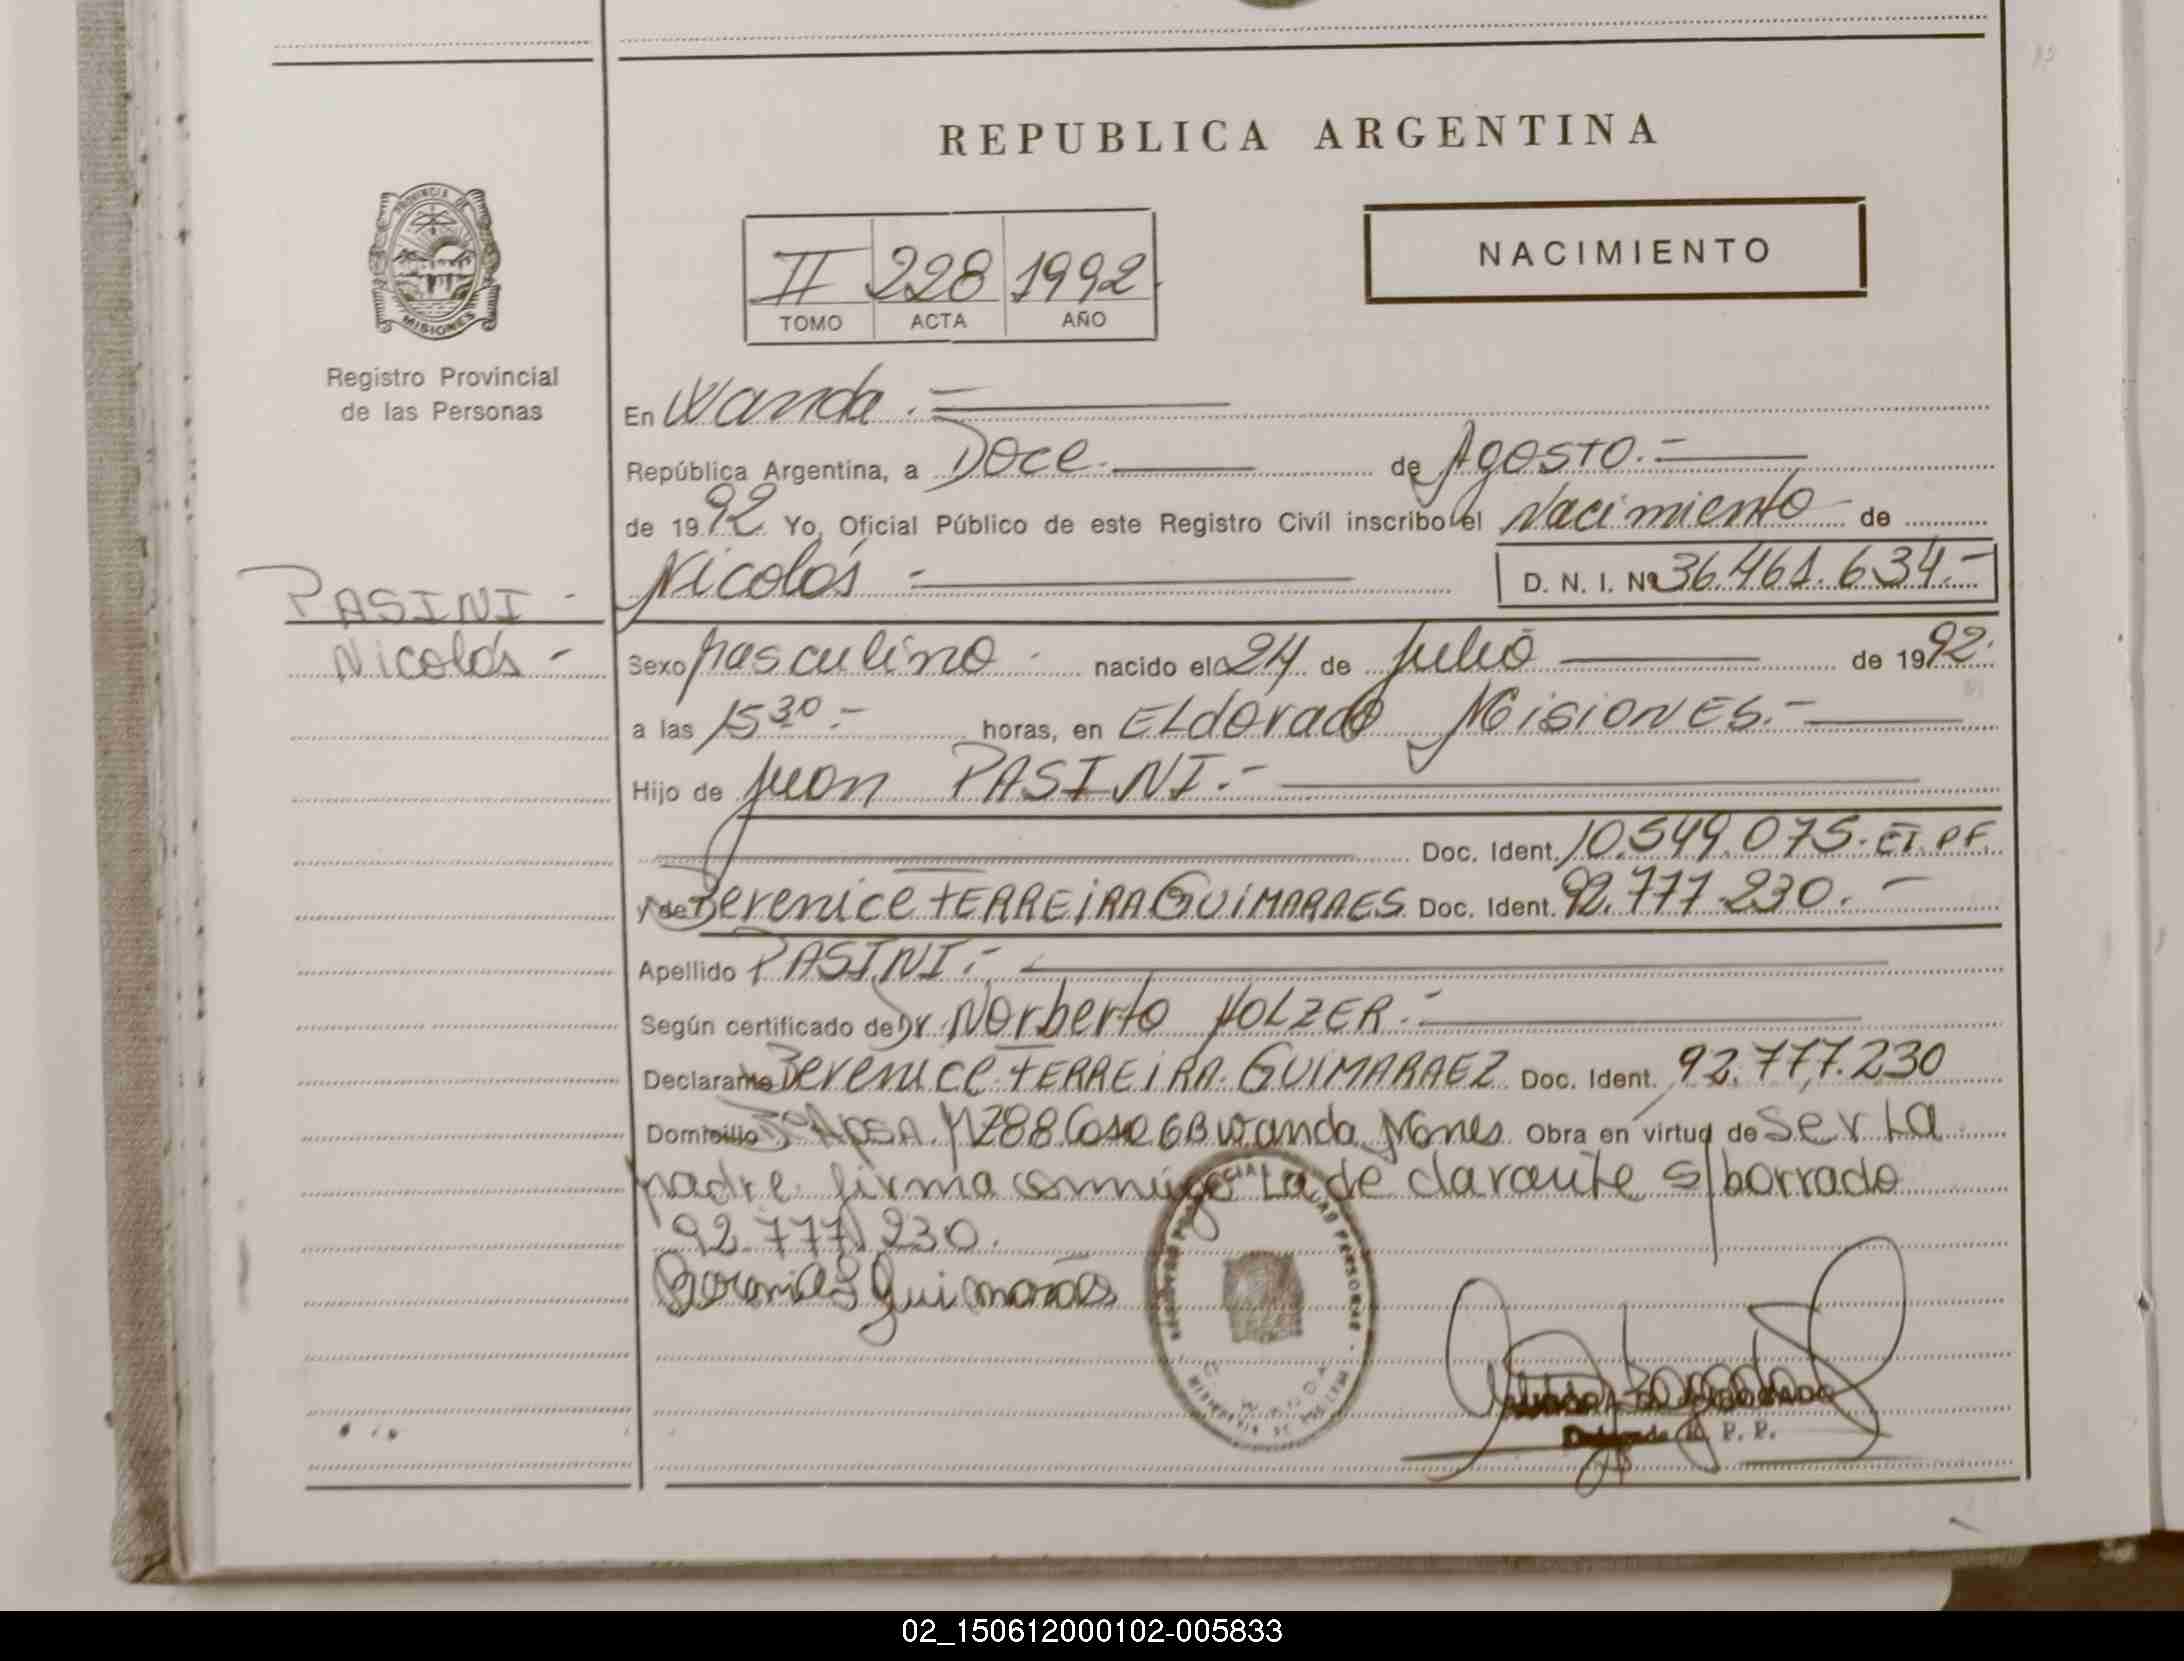 REPUBLICA ARGENTINA
PROVINCIA DE
MISIONES
Registro Provincial
de las Personas
II 228 1992
TOMO ACTA AÑO
NACIMIENTO
En Wanda.=
República Argentina, a Doce. de Agosto.=
de 1992 Yo, Oficial Público de este Registro Civil inscribo el Nacimiento de
Nicolás - D. N. I. Nº 36.461.634.-
PASINI -
Nicolás -
Sexo Masculino nacido el 24 de Julio de 1992.
a las 15 30.- horas, en ELdorado Misiones.-
Hijo de Juan PASINI.-
Doc. Ident. 10.549.075. CI. PF.
y de Berenice FERREIRA GUIMARAES Doc. Ident. 92.777.230.-
Apellido PASINI.-
Según certificado de Dr Norberto HOLZER.-
Declarante Berenice FERREIRA GUIMARAEZ Doc. Ident. 92.777.230
Domicilio Mz88 Casa 6B Wanda Mnes Obra en virtud de Ser La
madre firma conmigo La declarante s/borrado
92.777.230.
Guimarães
R. P. P.
02_150612000102-005833